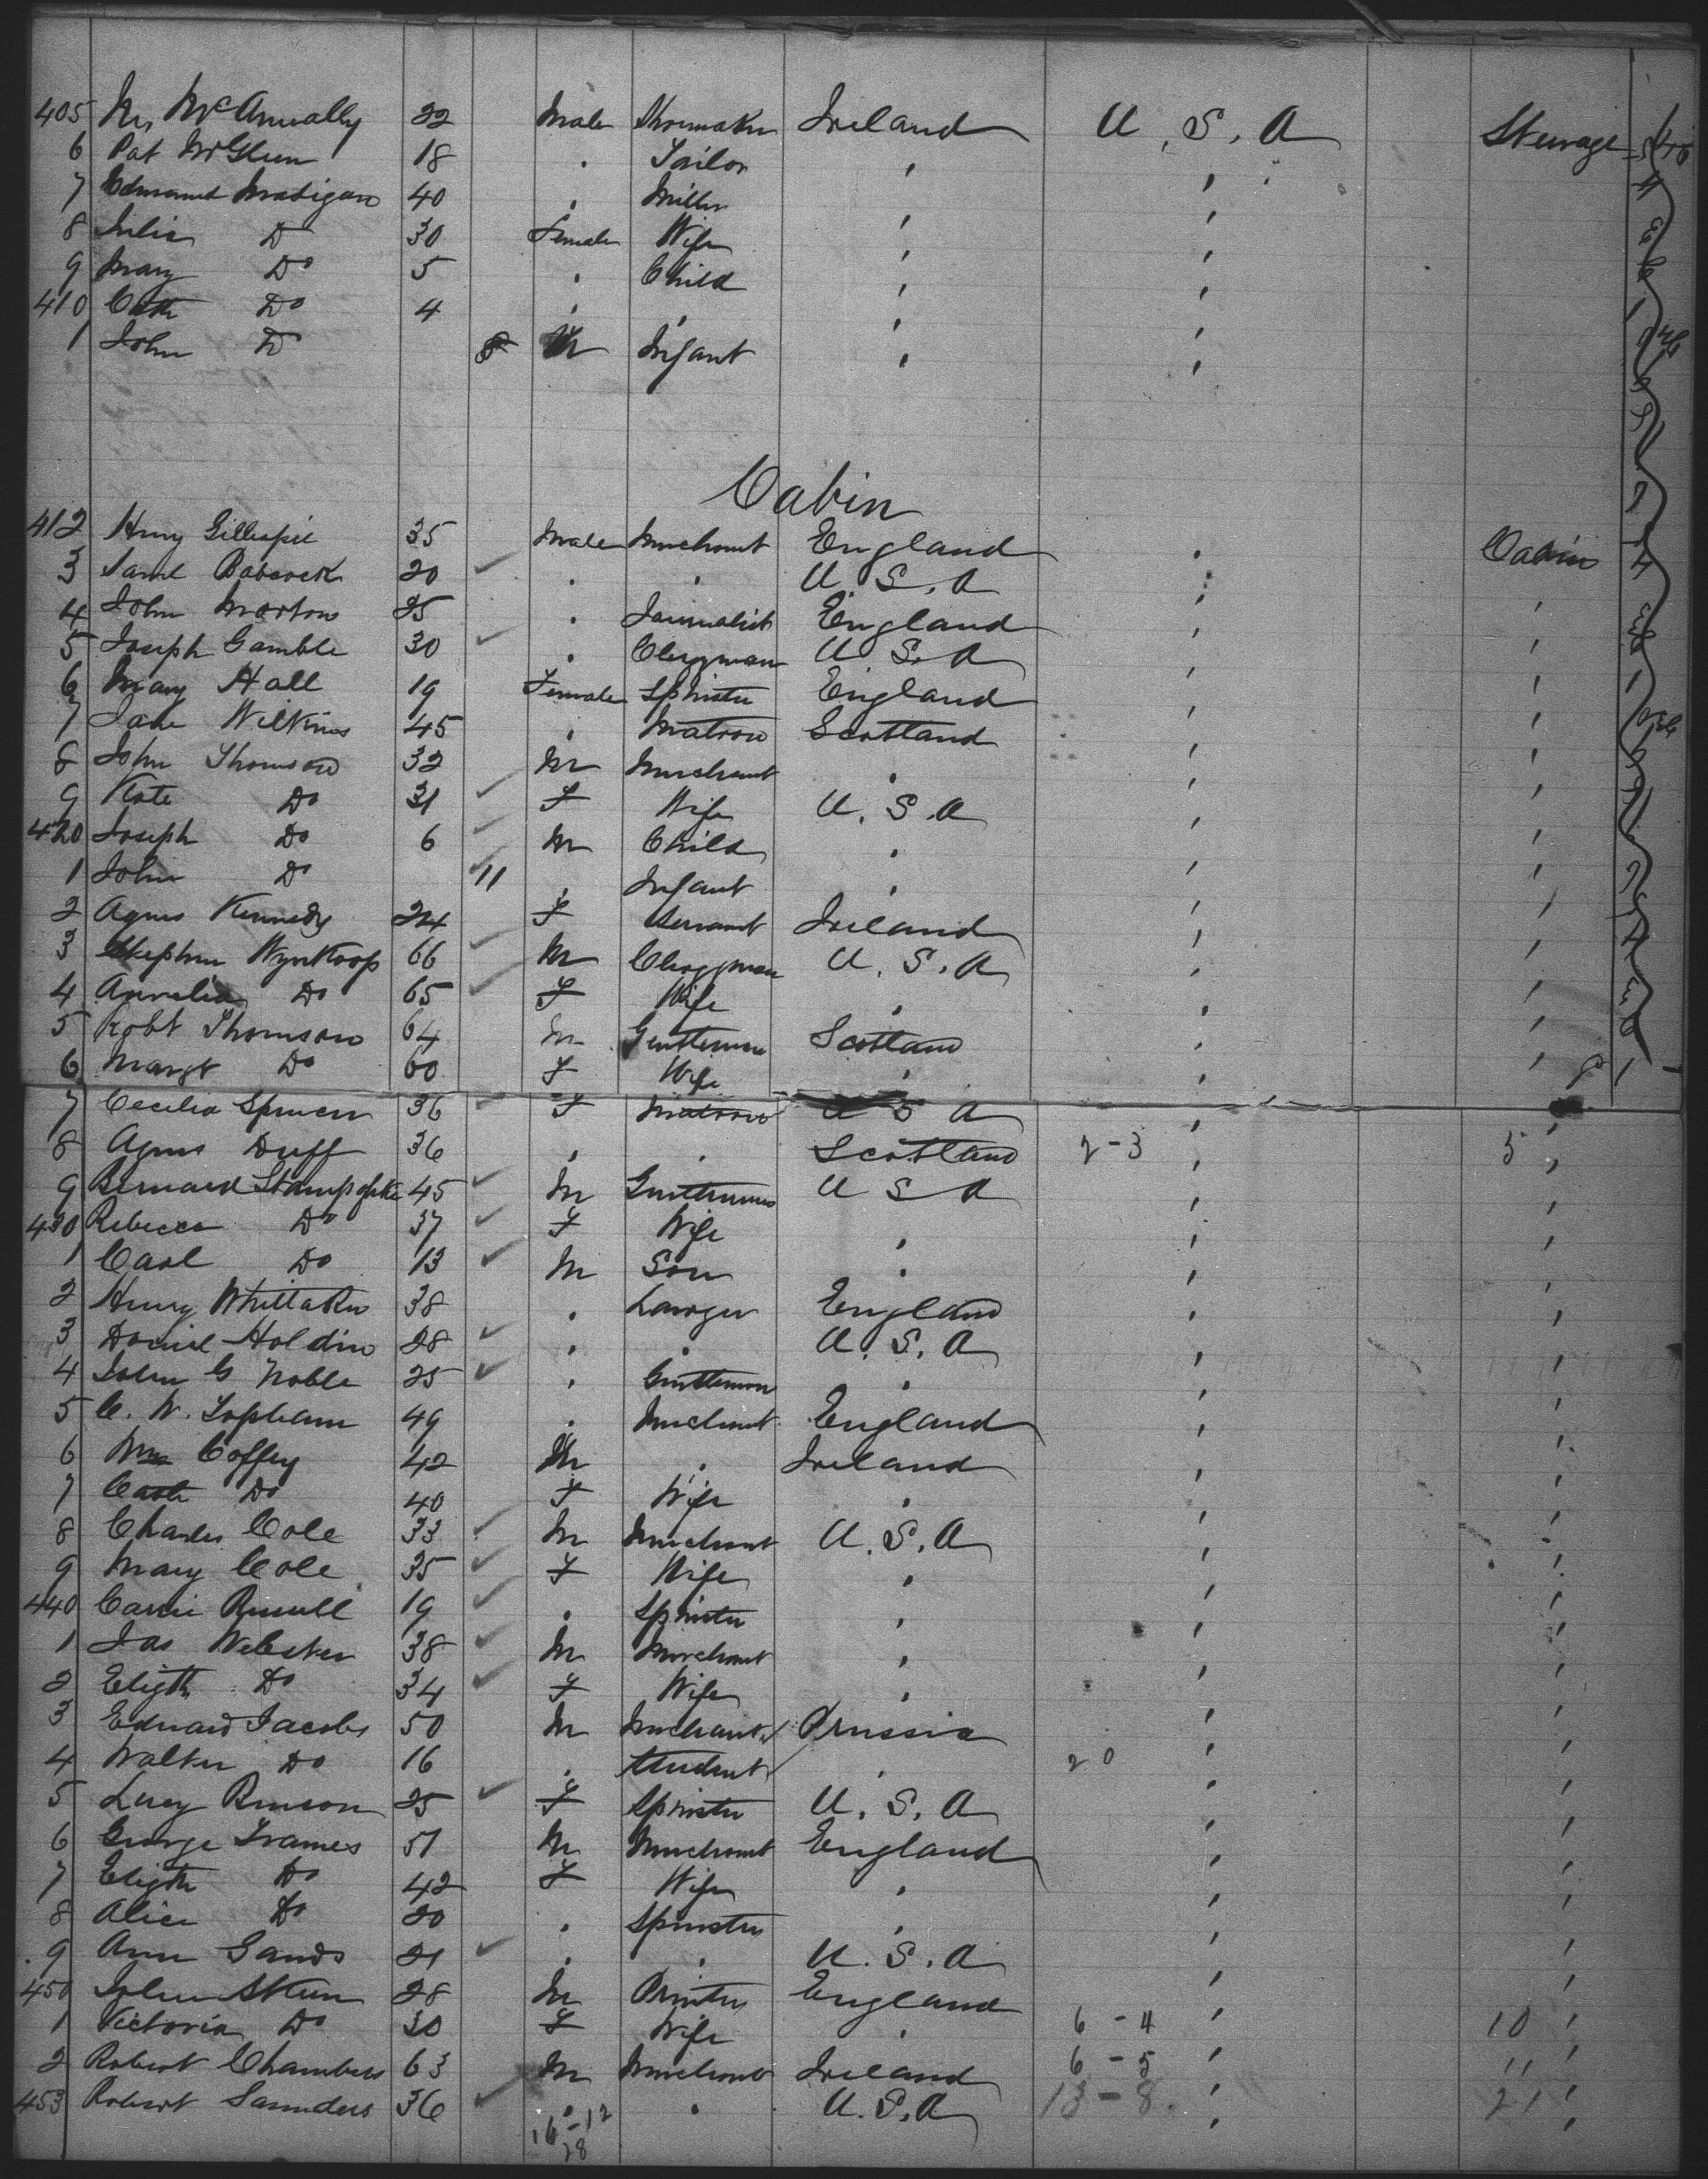 405 McAnnally 22 Male Shoemaker Ireland U.S.A Steerage
6 Pat McGlen 18 " Tailor " "
7 Edmund Madigan 40 " Miller " "
8 Julia Do 30 Female Wife " "
9 Mary Do 5 " Child " "
410 Cath Do 4 " " " "
1 John Do 8 M Infant " "
Cabin
412 Henry Gillespie 35 Male Merchant England " Cabin
3 Saml Babcock 20 " " U.S.A " "
4 John Morton 25 " Journalist England " "
5 Joseph Gamble 30 " Clergyman U.S.A " "
6 Mary Hall 19 Female Spinster England " "
7 Jane Wilkins 45 " Matron Scotland " "
8 John Thomson 32 M Merchant " " "
9 Kate Do 31 F Wife U.S.A " "
420 Joseph Do 6 M Child " " "
1 John Do 11 " Infant " " "
2 Agnes Kennedy 24 F Servant Ireland " "
3 Stephen Wynkoop 66 M Clergyman U.S.A " "
4 Aurelia Do 65 F Wife " " "
5 Robt Thomson 64 M Gentleman Scotland " "
6 Margt Do 60 F Wife " " "
7 Cecilia Spencer 36 F Matron U S A " "
8 Agnes Duff 36 " " Scotland 2-3 " 5 "
9 Bernard 45 M Gentleman U S A " "
430 Rebecca Do 37 F Wife " " "
1 Carl Do 13 M Son " " "
2 Henry Whittaker 38 " Lawyer England " "
3 Daniel Holdin 28 " " U.S.A " "
4 John G Noble 25 " Gentleman " " "
5 C. W. Topham 49 " Merchant England " "
6 Wm Coffey 42 M " Ireland " "
7 Cath Do 40 F Wife " " "
8 Charles Cole 33 M Merchant U.S.A " "
9 Mary Cole 35 F Wife " " "
440 Carrie Russell 19 " Spinster " " "
1 Jas Webster 38 M Merchant " " "
2 Elizth Do 34 F Wife " " "
3 Edward Jacobs 50 M Merchant Prussia " "
4 Walter Do 16 " Student " 20 " "
5 Lucy 25 F Spinster U.S.A " "
6 George Frames 51 M Merchant England " "
7 Elizth Do 42 F Wife " " "
8 Alice Do 20 " Spinster " " "
9 Ann Sands 21 " " U.S.A " "
450 John 28 M Printer England " "
1 Victoria Do 30 F Wife " 6-4 " 10 "
2 Robert Chambers 63 M Merchant Ireland 6-5 " 11 "
453 Robert Saunders 36 " " U.S.A 13-8 " 21 "
16-12
28